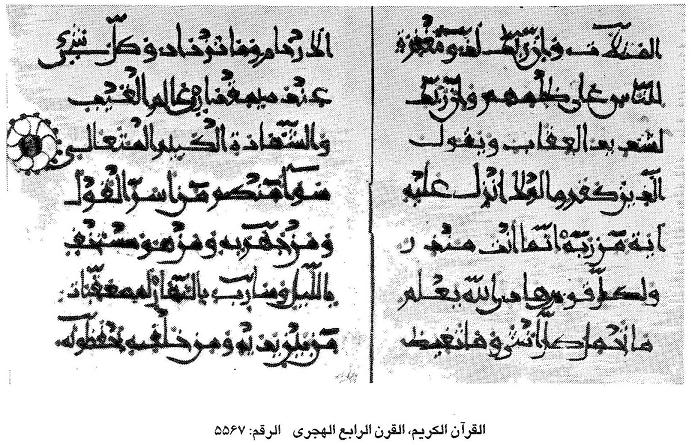 المثلات وإن ربك لذو مغفرة
للناس على ظلمهم وإن ربك
لشديد العقاب ويقول
الذين كفروا لولا أنزل عليه
آية من ربه إنما أنت منذر
ولكل قوم هاد الله يعلم
ما تحمل كل أنثى وما تغيض
الأرحام وما تزداد وكل شيء
عنده بمقدار عالم الغيب
والشهادة الكبير المتعال
سواء منكم من أسر القول
ومن جهر به ومن هو مستخف
بالليل وسارب بالنهار له معقبات
من بين يديه ومن خلفه يحفظونه
القرآن الكريم، القرن الرابع الهجرى الرقم: ۵۵۶۷